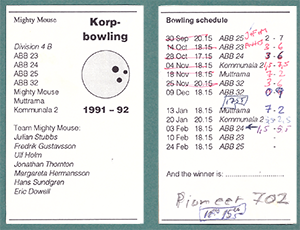 Mighty Mouse
Korp-
bowling
Division 4 B
ABB 23
ABB 24
ABB 25
ABB 32
Mighty Mouse
Muttrama
Kommunala 2
1991 – 92
Team Mighty Mouse:
Julian Stubbs
Fredrik Gustavsson
Ulf Holm
Jonathan Thornton
Margareta Hermansson
Hans Sundgren
Eric Dowsill
Bowling schedule
30 Sep 20.15 ABB 25 2 - 7
14 Oct 18.15 ABB 23 3 - 6
28 Oct 17.15 ABB 24 3 - 6
04 Nov 18.15 Kommunala
18 Nov 18.15 Muttrama 7 - 2
25 Nov 18.15 ABB 32
09 Dec 18.15 ABB 32 0 9
13 Jan 18.15 Muttrama 7 - 2
20 Jan 20.15 Kommunala 2
03 Feb 18.15 ABB 24
10 Feb 18.15 ABB 23 -
24 Feb 18.15 ABB 25 -
And the winner is:
Pioneer 702